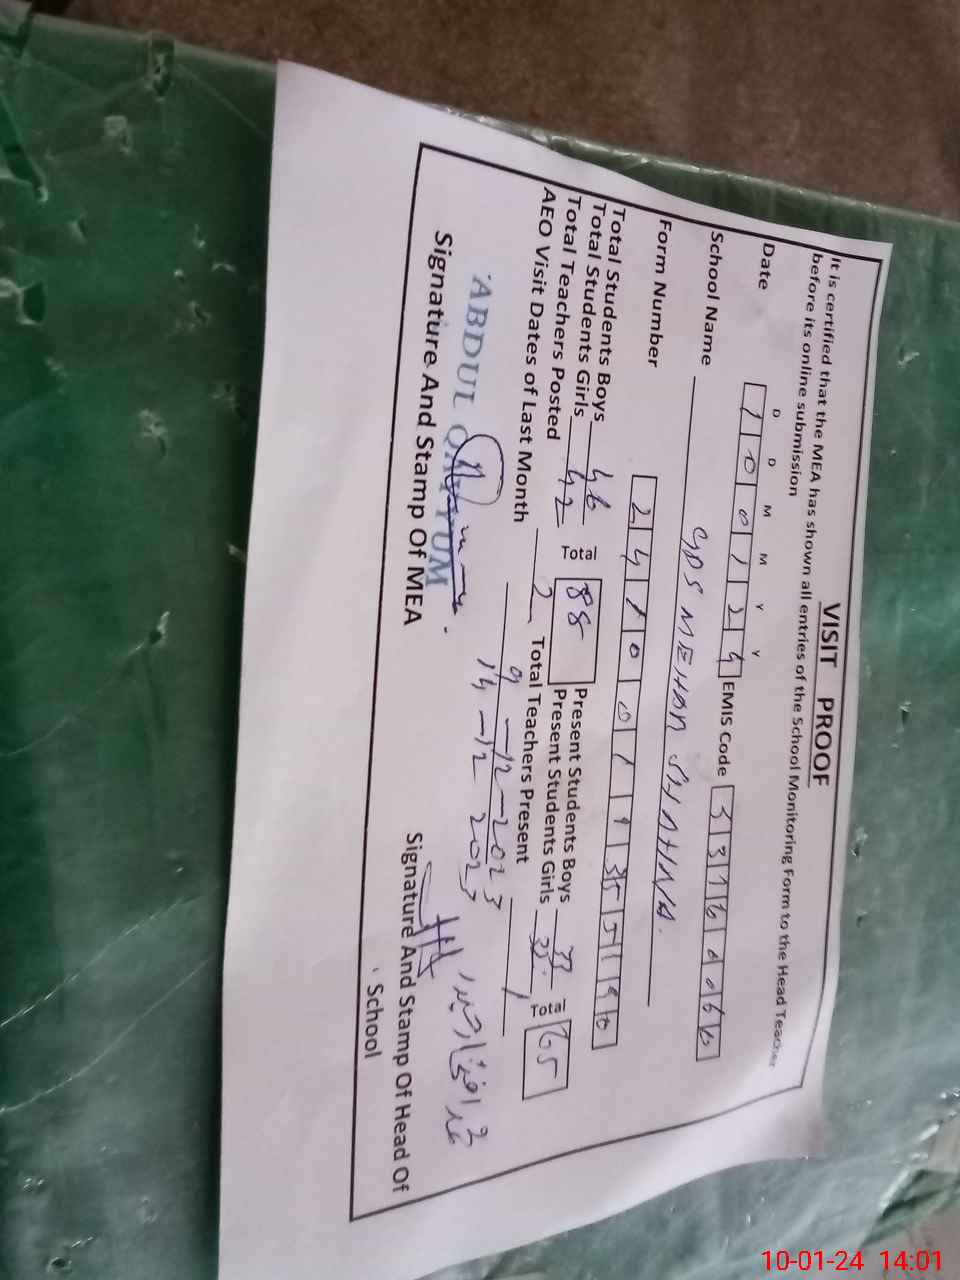 VISIT PROOF
It is certified that the MEA has shown all entries of the School Monitoring Form to the Head Teacher
before its online submission
D D M M Y Y
Date 1 0 0 1 2 4 EMIS Code 3 3 1 6 0 0 6 6
School Name GPS MEHAR SHAHWA
Form Number 2 4 1 0 0 1 1 1 35 5 1 1 9 0
Total Students Boys 46 Present Students Boys 33
Total Students Girls 42 Total 88 Present Students Girls Total 65
Total Teachers Posted 2 Total Teachers Present 1
AEO Visit Dates of Last Month 9-12-2023
14-12 2023
ABDUL QAYYUM
Signature And Stamp Of MEA Signature And Stamp Of Head Of
School
10-01-24 14:01